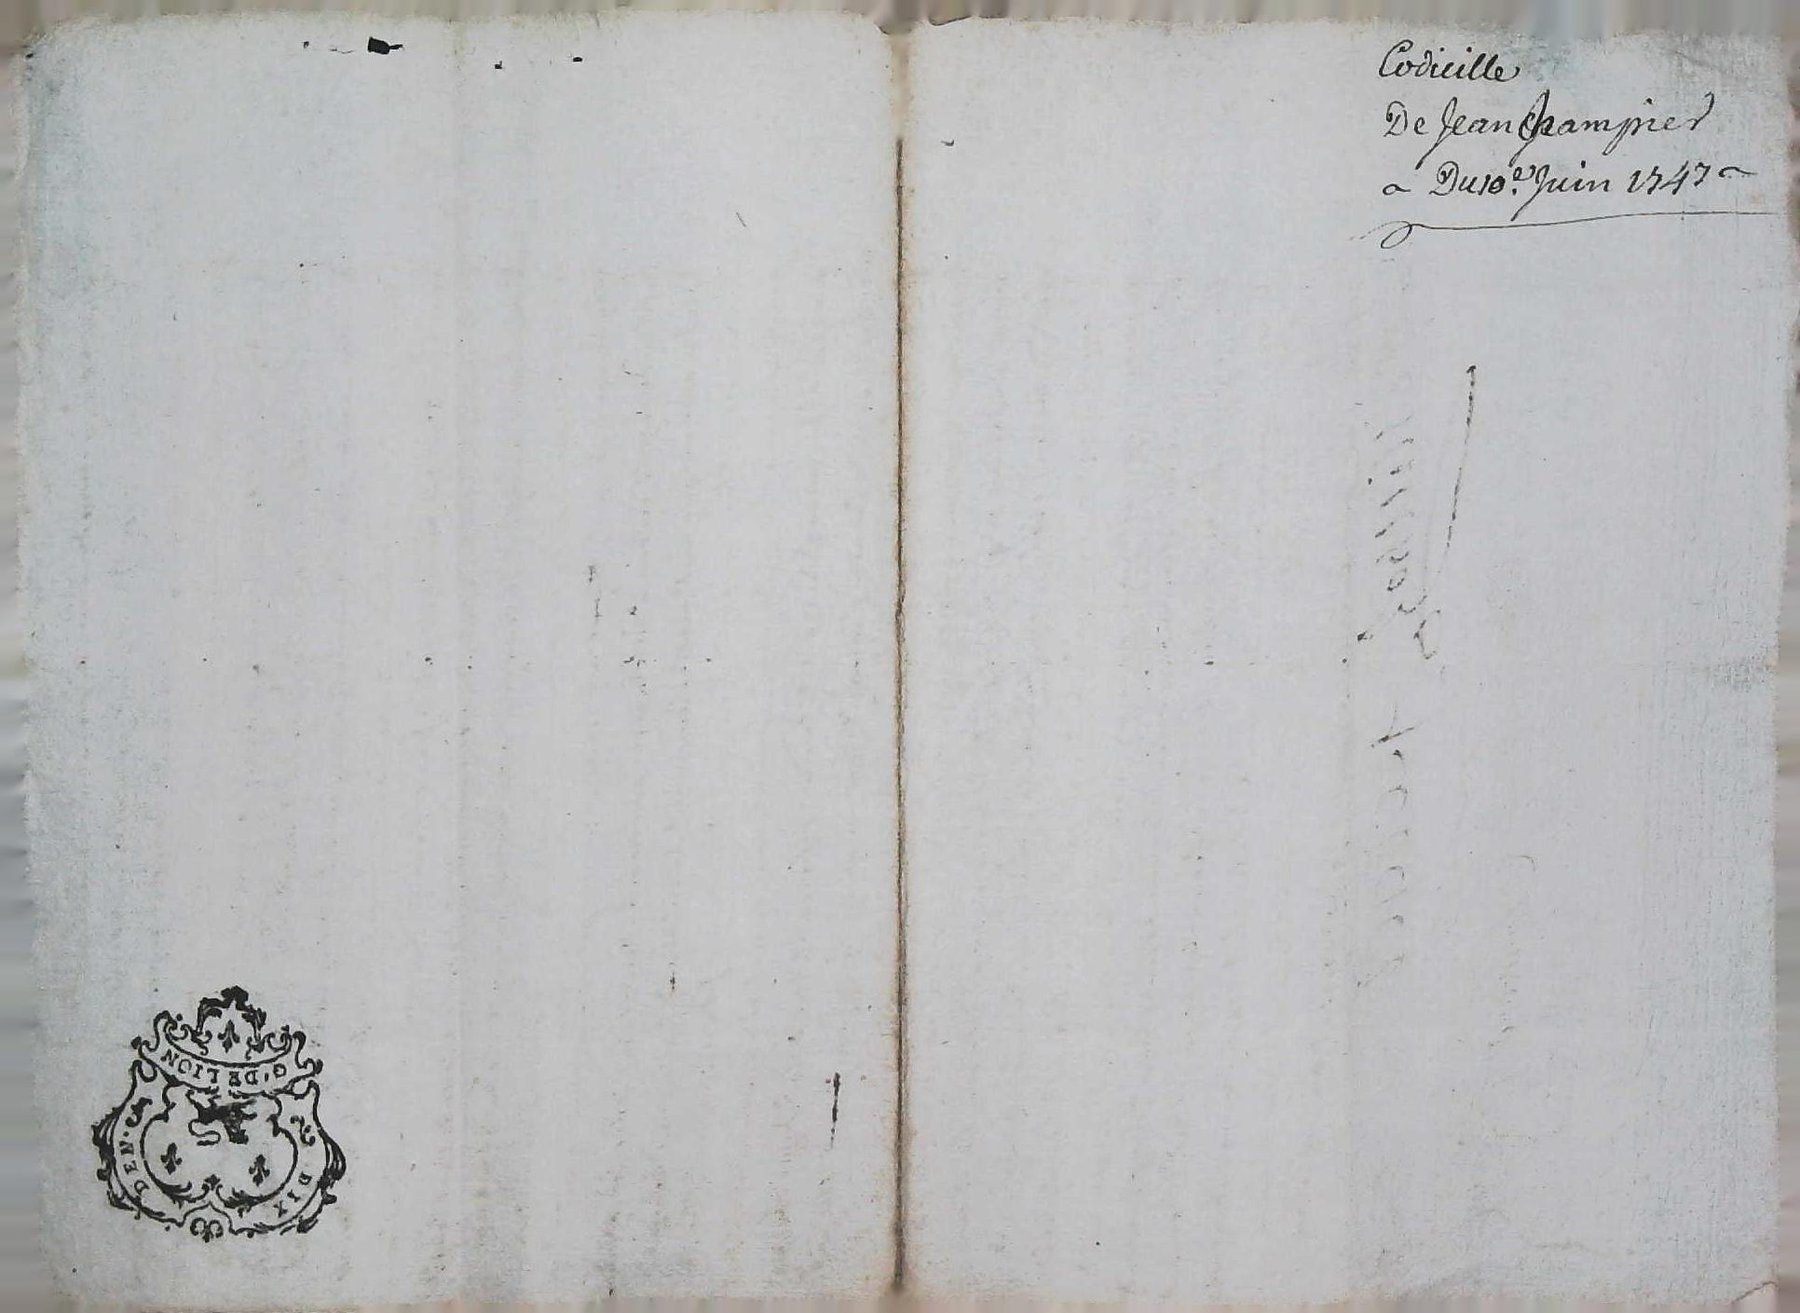 Codicille
De Jean Champier
Du 10.e Juin 1747
G. DE LION
DIX
DEN.